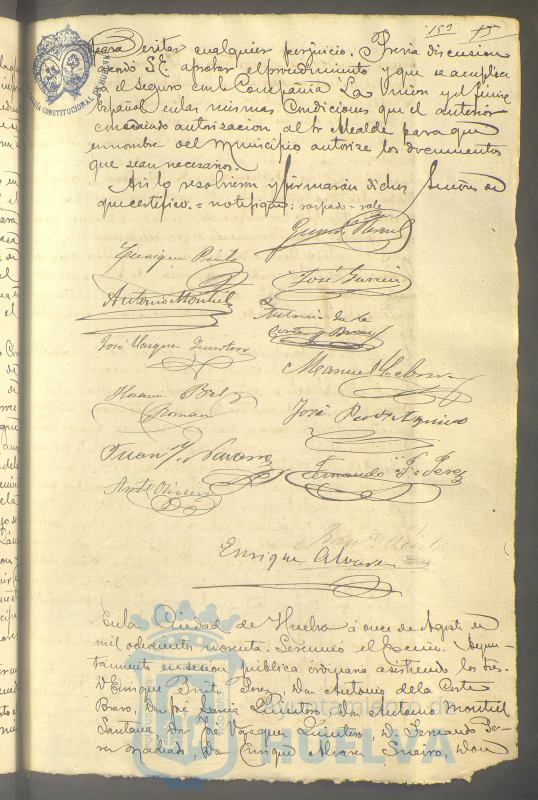 153 75
para evitar cualquier perjuicio. Previa discusion
acordó S.E. aprobar el procedimiento y que se amplie
el seguro con la Compañia La Union y el Fénix
Español en las mismas Condiciones que el anterior
concediendo autorizacion al Sr. Alcalde para que
en nombre del Municipio autorize los documentos
que sean necesarios.
Asi lo resolvieron y firmarán dichos Señores de
que certifico. = notifique: raspado = vale
Enrique Prieto
José Garcia
Antonio Montiel
Antonio de la
Corte y Bravo
José Vazquez Quintero
Manuel Cabrera
Roman
José
Juan J. Navarro
Fernando F. Perez
Enrique Alvarez
En la Ciudad de Huelva á once de Agosto de
mil ochocientos noventa. Se reunió el Excmo. Ayun-
tamiento en sesion pública ordinaria asistiendo los Sres.
D. Enrique Prieto Perez, Don Antonio de la Corte
Bravo, Don José Garcia Quintero, Don Antonio Montiel
Santana, Don José Vazquez Quintero, D. Fernando
Don Enrique Alvarez Don
Ayuntamiento de
HUELVA
CONSTITUCIONAL DE HUELVA